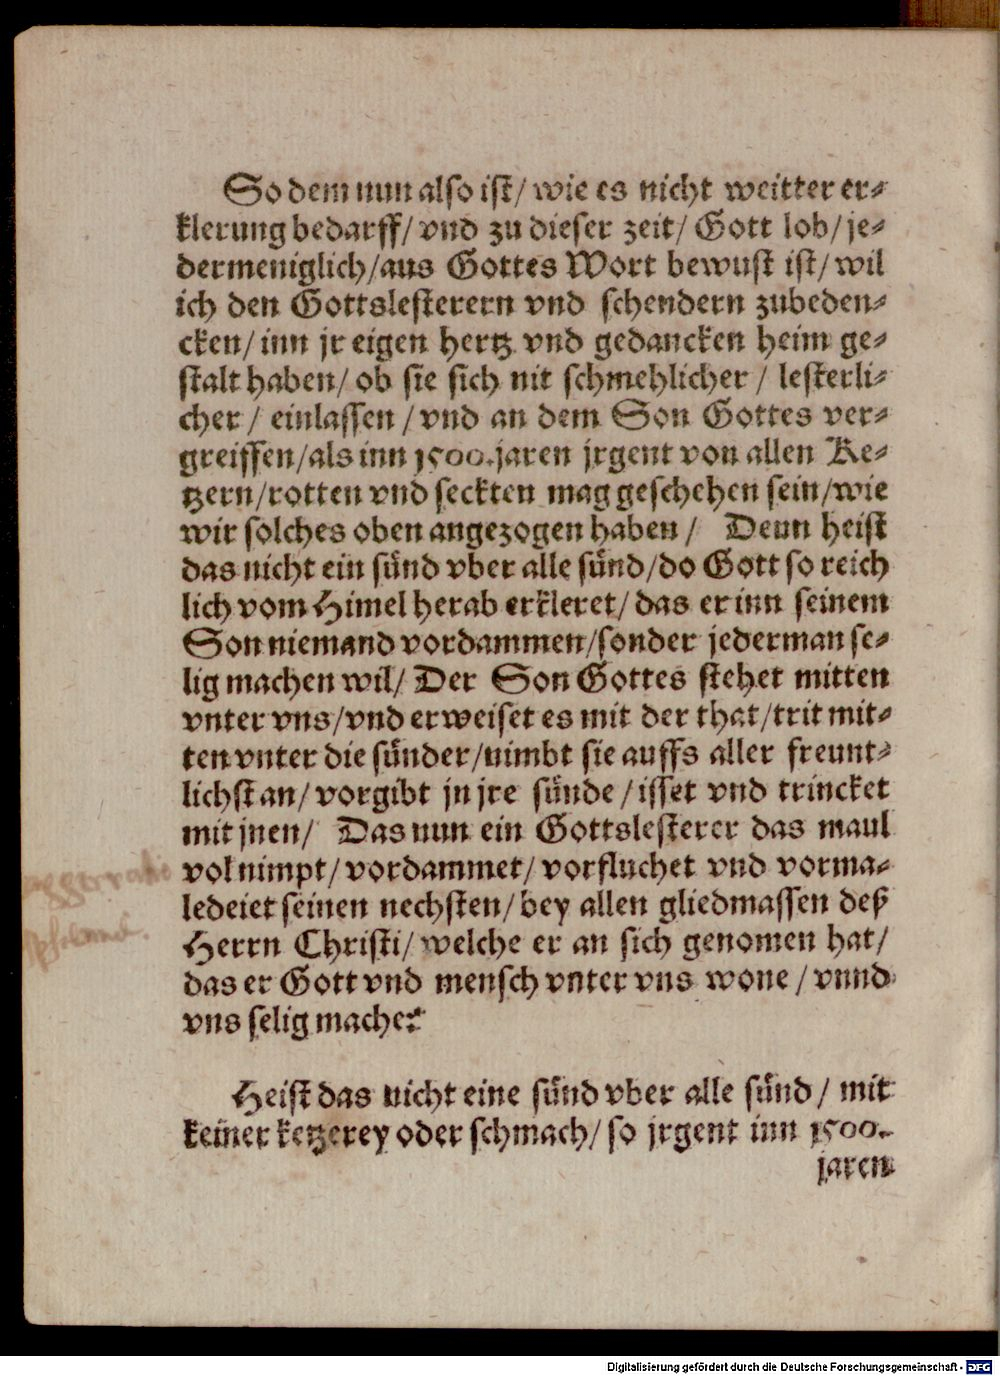 So dem nun also ist/ wie es nicht weitter er⸗
klerung bedarff/ vnd zu dieser zeit/ Gott lob/ je⸗
dermeniglich/aus Gottes Wort bewust ist/ wil
ich den Gottslesterern vnd schendern zubeden⸗
cken/ inn jr eigen hertz vnd gedancken heim ge⸗
stalt haben/ ob sie sich nit schmehlicher / lesterli⸗
cher / einlassen /vnd an dem Son Gottes ver⸗
greiffen/als inn 1500.jaren jrgent von allen Ke⸗
tzern/rotten vnd seckten mag geschehen sein/wie
wir solches oben angezogen haben / Denn heist
das nicht ein sünd vber alle sünd/do Gott so reich
lich vom Himel herab erkleret/ das er inn seinem
Son niemand vordammen/sonder jederman se⸗
lig machen wil/ Der Son Gottes stehet mitten
vnter vns/vnd erweiset es mit der that/trit mit⸗
ten vnter die sünder/nimbt sie auffs aller freunt⸗
lichst an/ vorgibt jn jre sünde /isset vnd trincket
mit jnen/ Das nun ein Gottslesterer das maul
vol nimpt/ vordammet/ vorfluchet vnd vorma⸗
ledeiet seinen nechsten/ bey allen gliedmassen deß
Herrn Christi/ welche er an sich genomen hat/
das er Gott vnd mensch vnter vns wone / vnnd
vns selig mache?
Heist das nicht eine sünd vber alle sünd / mit
keiner ketzerey oder schmach/ so jrgent inn 1500.
jaren
Digitalisierung gefördert durch die Deutsche Forschungsgemeinschaft - DFG